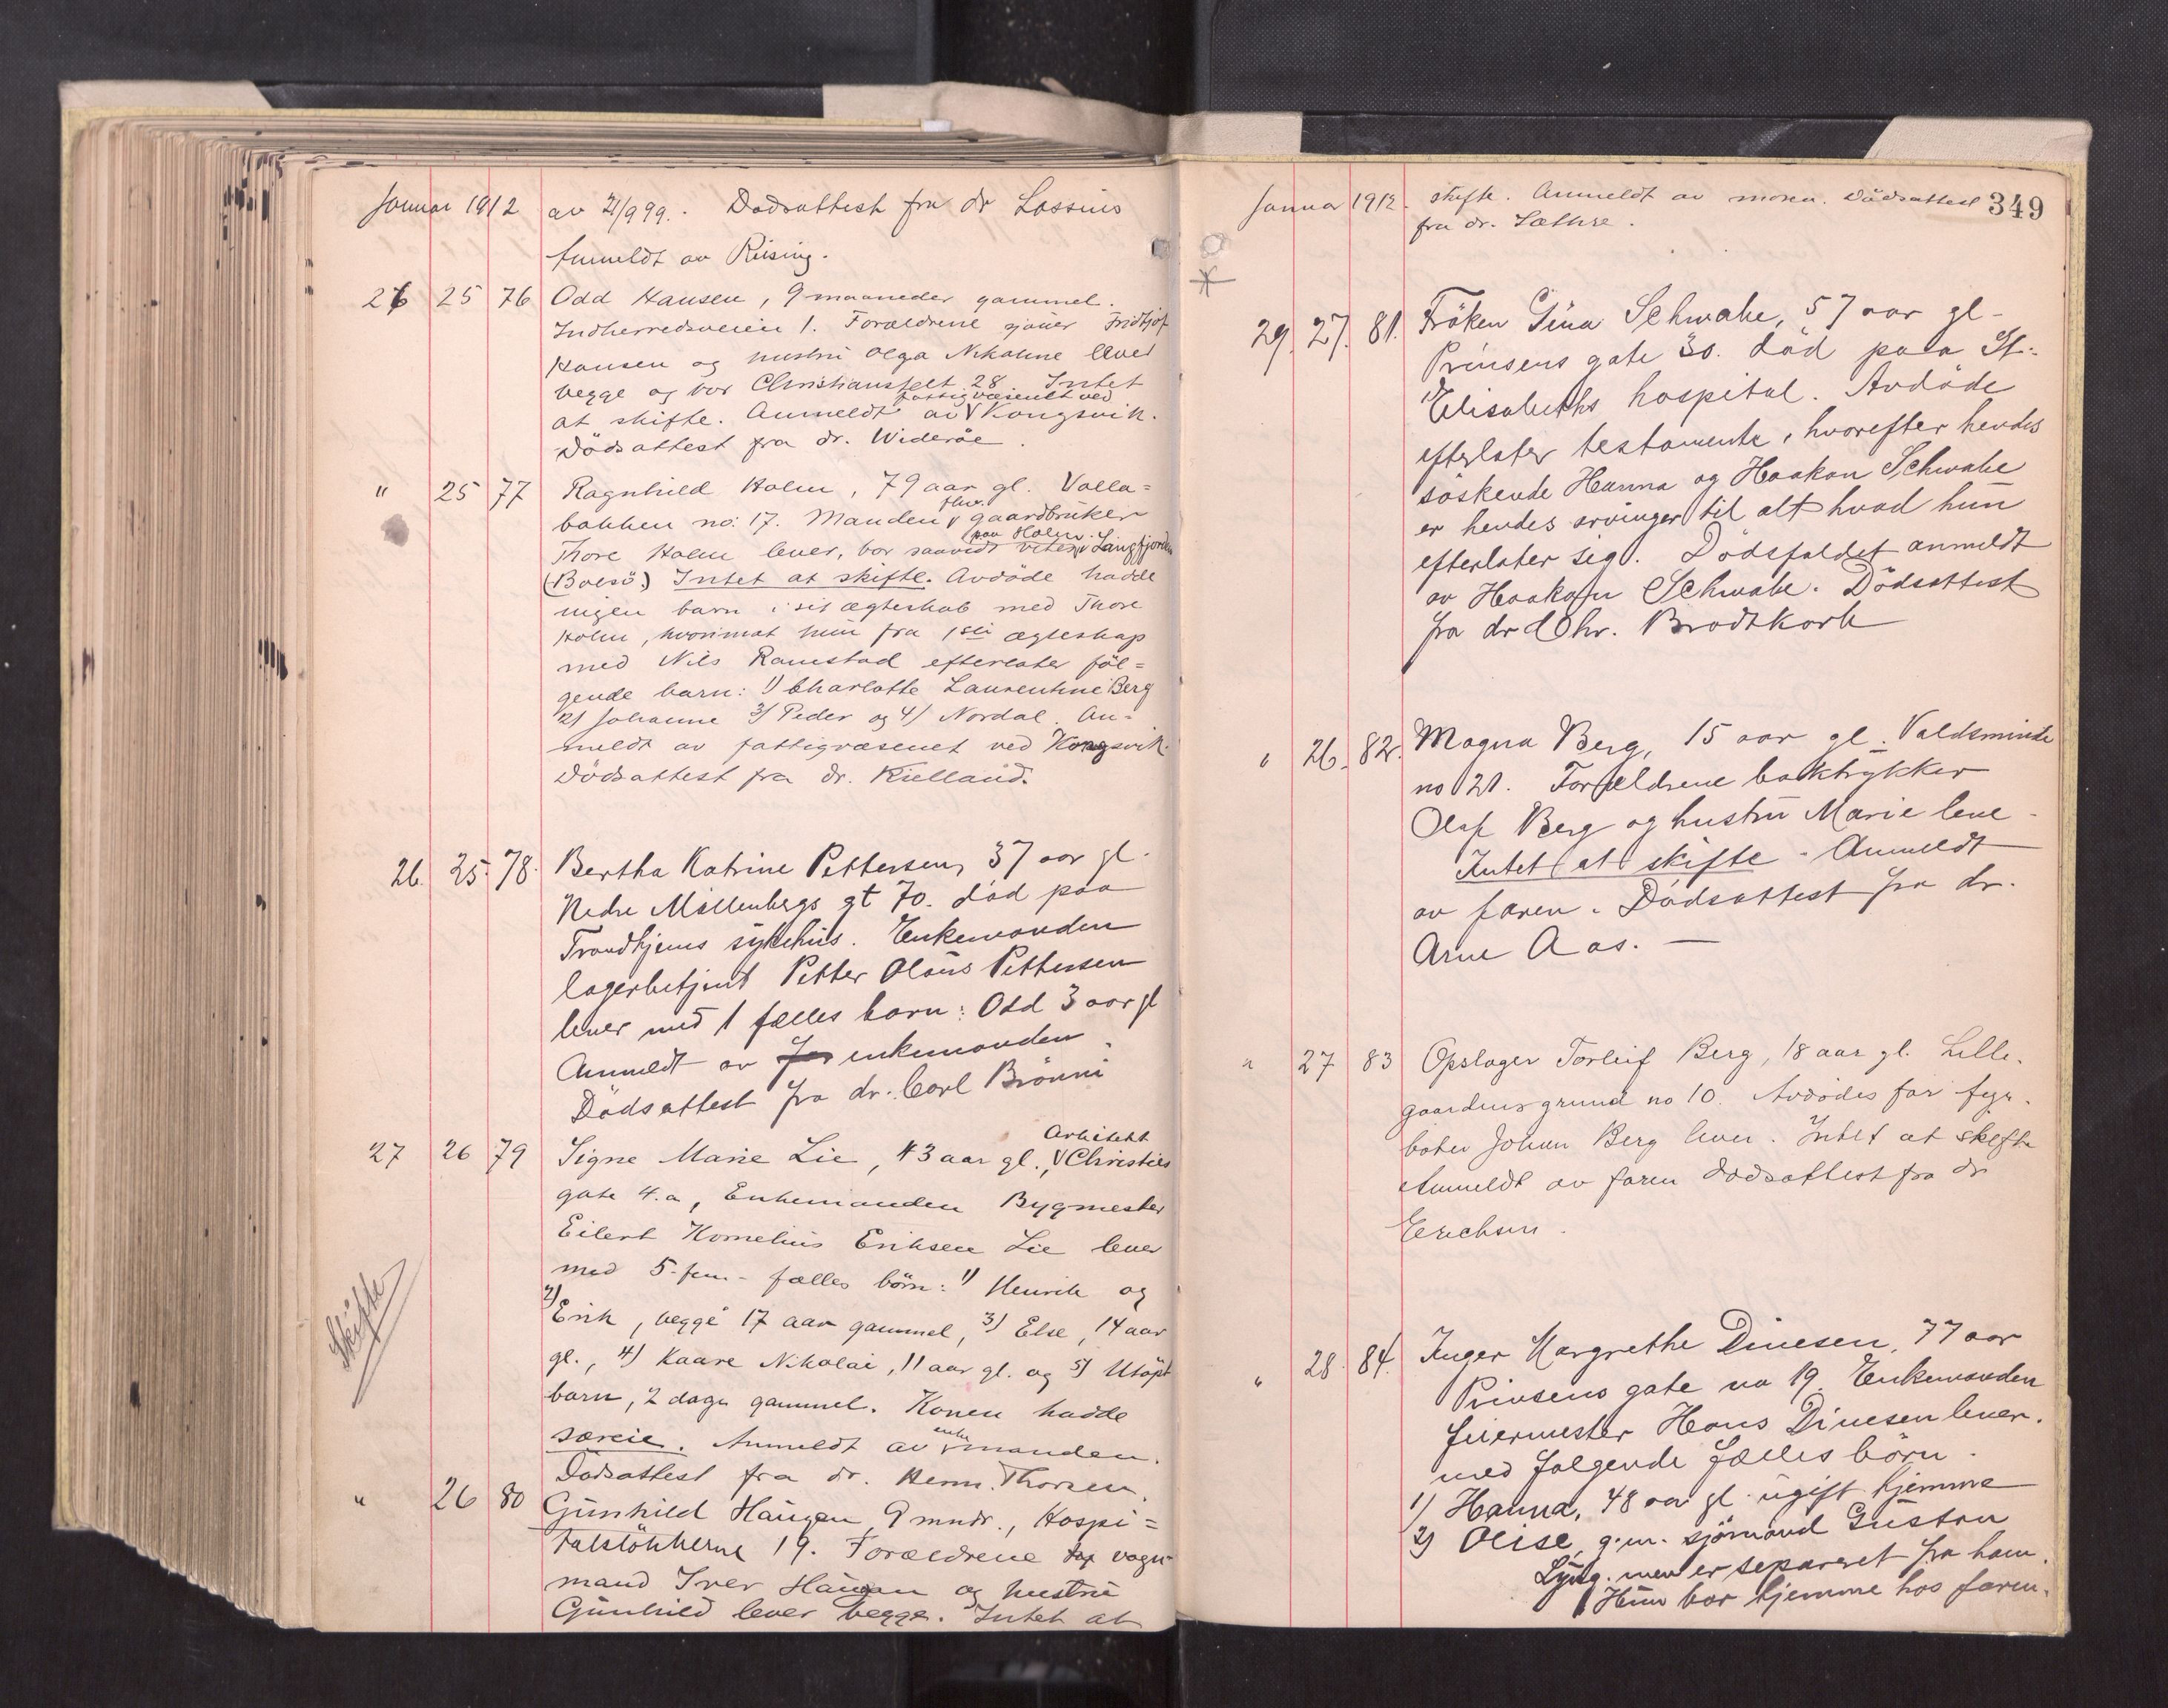 Januar 1912 av 21/9 99. Dødsattest fra dr Lossius
Anmeldt av Riising.
26 25 76 Odd Hansen, 9 maaneder gammel.
Indherredsveien 1. Forældrene sjauer Fridtjof
Hansen og hustru Olga Nikoline lever
begge og bor Christiansfelt 28. Intet
fattigvæsenet ved
at skifte. Anmeldt av V Kongsvik.
Dödsattest fra dr. Wideröe.
" 25 77 Ragnhild Holm, 79 aar gl. Volla=
fhv.
bakken no: 17. Manden V gaardbruker
paa Holm
Thore Holm lever, bor saavidt vites V Langfjorden
(Bolsö.) Intet at skifte. Avdöde hadde
ingen barn i sit ægteskab med Thore
Holm, hvorimot hun fra 1ste ægteskap
med Nils Ramstad efterlater föl=
gende barn: 1) Charlotte Laurentine Berg
2) Johanne 3) Peder og 4) Nordal. An=
meldt av fattigvæsenet ved Kongsvik.
Dödsattest fra dr. Kielland.
26. 25. 78. Bertha Katrine Pettersen, 37 aar gl.
Nedre Möllenbergs gt 70. död paa
Trondhjems sykehus. Enkemanden
lagerbetjent Petter Olaus Pettersen
lever med 1 fælles barn: Odd 3 aar gl
Anmeldt av enkemanden.
Dödsattest fra dr. Carl Brönni
27 26 79 Signe Marie Lie, 43 aar gl., V Christies
Arkitekt
gate 4.a, Enkemanden Bygmester
Eilert Kornelius Eriksen Lie lever
med 5-fem- fælles börn: 1) Henrik og
2) Erik, begge 17 aar gammel, 3) Else, 14 aar
gl., 4) Kaare Nikolai, 11 aar gl. og 5) Utöpt
barn, 2 dage gammel. Konen hadde
særeie. Anmeldt av V manden.
enke
Dödsattest fra dr. Herm. Thorsen.
Skifte
" 26 80 Gunhild Haugen 9 mndr., Hospi=
talslökkerne 19. Forældrene vogn-
mand Iver Haugen og hustru
Gunhild lever begge. Intet at
Januar 1912. skifte. Anmeldt av moren. Dödsattest 349
fra dr. Sæthre.
29. 27. 81. Fröken Gina Schwabe, 57 aar gl-
Prinsens gate 30. död paa St.
Elisabeths hospital. Avdöde
efterlater testamente, hvorefter hendes
söskende Hanna og Haakon Schwabe
er hendes arvinger til alt hvad hun
efterlater sig. Dödsfaldet anmeldt
av Haakon Schwabe. Dödsattest
fra dr Chr. Brodtkorb
" 26. 82. Magna Berg, 15 aar gl. Valdsminde
no 21. Forældrene boktrykker
Olaf Berg og hustru Marie leve-
Intet at skifte. Anmeldt
av faren. Dödsattest fra dr.
Arne Aas. —
" 27 83 Opslager Torleif Berg, 18 aar gl. Lille-
gaardens grund no 10. Avdödes far fyr-
böter Johan Berg lever. Intet at skifte
Anmeldt av faren Dödsattest fra dr
Erichsen.
" 28. 84. Inger Margrethe Dinesen, 77 aar
Prinsens gate no 19. Enkemanden
feiermester Hans Dinesen lever.
med følgende fælles börn.
1) Hanna, 48 aar gl. ugift hjemme
2) Olise, g.m. sjömand Gustav
Lyng. men er separeret fra ham.
Hun bor hjemme hos faren.